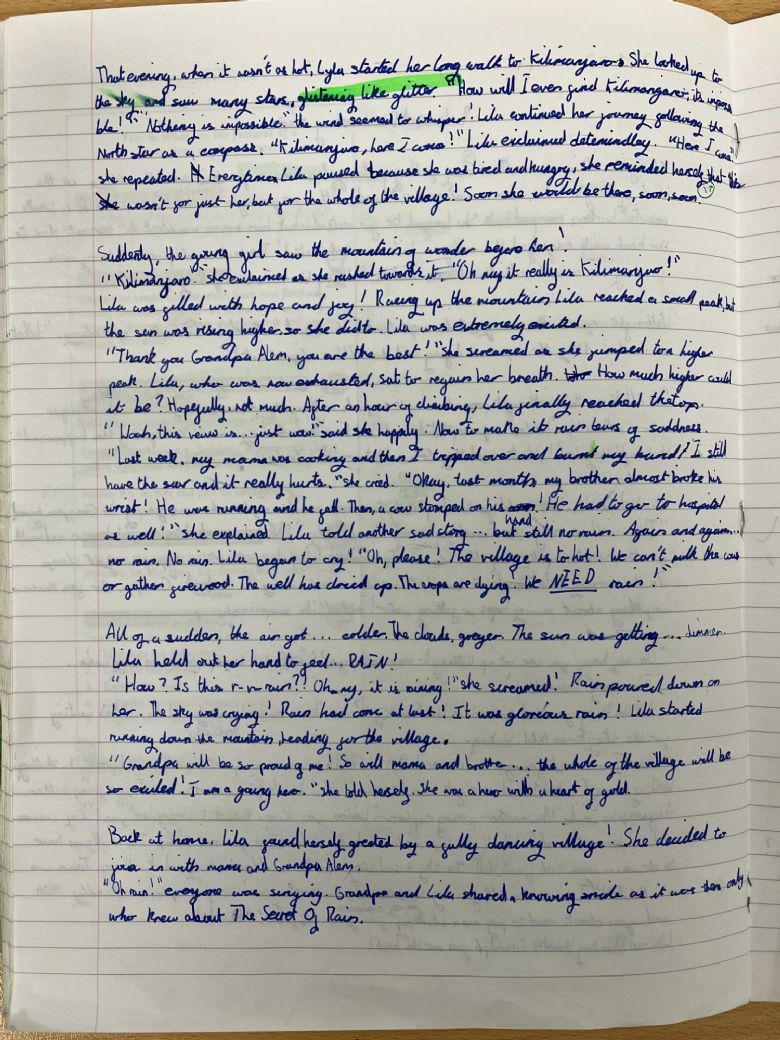 That evening, when it wasn't as hot, Lyla started her long walk to Kilimanjaro. She looked up to
the sky and saw many stars, glistening like glitter. "How will I even find Kilimangaro, its imposs
ble!" "Nothing is impossible" the wind seemed to whisper. Lila continued her journey following the
North star as a compass. "Kilimanjaro, here I come!" Lila exclaimed determindley. "Here I come"
she repeated. Everytime Lila paused because she was tired and hungry, she reminded herself that this
wasn't for just her, but for the whole of the village! Soon she would be there, soon, soon.
Suddenly, the young girl saw the mountain of wonder before her!
"Kilimanjaro" she exclaimed as she rushed towards it, "Oh my it really is Kilimanjaro!"
Lila was filled with hope and joy! Racing up the mountain, Lila reached a small peak, but
the sun was rising higher, so she did to. Lila was extremely excited.
"Thank you Grandpa Alem, you are the best!" she screamed as she jumped to a higher
peak. Lila, who was now exhausted, sat to regain her breath. How much higher could
it be? Hopefully, not much. After an hour of climbing, Lila finally reached the top.
"Woah, this veiw is... just wow!" said she happily. Now to make it rain tears of saddness.
"Last week, my mama was cooking and then I tripped over and burnt my hand! I still
have the scar and it really hurts." she cried. "Okay, last months my brother almost broke his
wrist! He was running and he fell. Then, a cow stomped on his hand! He had to go to hospital
as well!" she explained. Lila told another sad story... but still no rain. Again and again...
no rain. No rain. Lila began to cry! "Oh, please! The village is to hot! We can't milk the cows
or gather firewood. The well has dried up. The crops are dying! We NEED rain!"
All of a sudden, the air got... colder. The clouds, greyer. The sun was getting... dimmer.
Lila held out her hand to feel... RAIN!
"How? Is this r-n-rain?! Oh my, it is raining!" she screamed! Rain poured down on
her. The sky was crying! Rain had come at last! It was glorious rain! Lila started
running down the mountain, heading for the village.
"Grandpa will be so proud of me! So will mama and brother... the whole of the village will be
so exited! I am a young hero." she told herself. She was a hero with a heart of gold.
Back at home, Lila found herself greeted by a fully dancing village! She decided to
join in with mama and Grandpa Alem.
"Oh rain!" everyone was singing. Grandpa and Lila shared a knowing smile as it was them only
who knew about The Secret Of Rain.